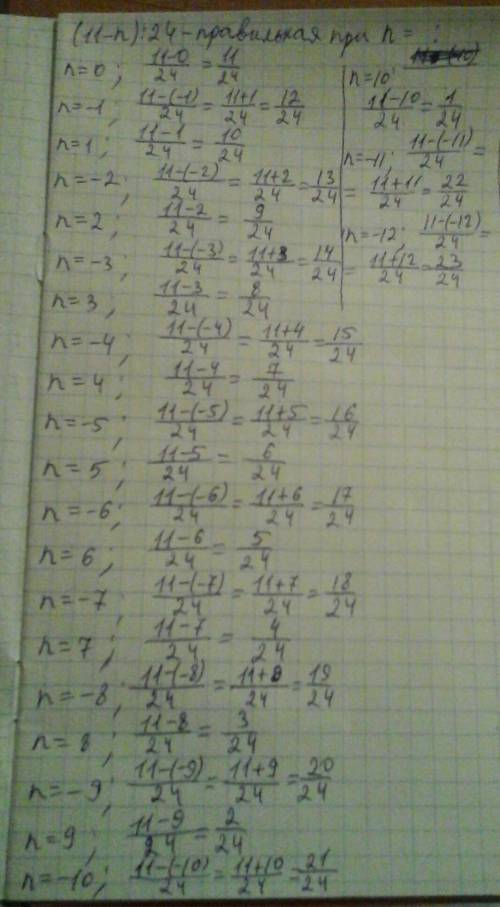 (11-n):24 - правильная при n= :
n=0; 11-0/24 = 11/24
n=-1; 11-(-1)/24 = 11+1/24 = 12/24
n=1; 11-1/24 = 10/24
n=-2; 11-(-2)/24 = 11+2/24 = 13/24
n=2; 11-2/24 = 9/24
n=-3; 11-(-3)/24 = 11+3/24 = 14/24
n=3; 11-3/24 = 8/24
n=-4; 11-(-4)/24 = 11+4/24 = 15/24
n=4; 11-4/24 = 7/24
n=-5; 11-(-5)/24 = 11+5/24 = 16/24
n=5; 11-5/24 = 6/24
n=-6; 11-(-6)/24 = 11+6/24 = 17/24
n=6; 11-6/24 = 5/24
n=-7; 11-(-7)/24 = 11+7/24 = 18/24
n=7; 11-7/24 = 4/24
n=-8; 11-(-8)/24 = 11+8/24 = 19/24
n=8; 11-8/24 = 3/24
n=-9; 11-(-9)/24 = 11+9/24 = 20/24
n=9; 11-9/24 = 2/24
n=-10; 11-(-10)/24 = 11+10/24 = 21/24
n=10;
11-10/24 = 1/24
n=-11; 11-(-11)/24 =
= 11+11/24 = 22/24
n=-12; 11-(-12)/24 =
= 11+12/24 = 23/24